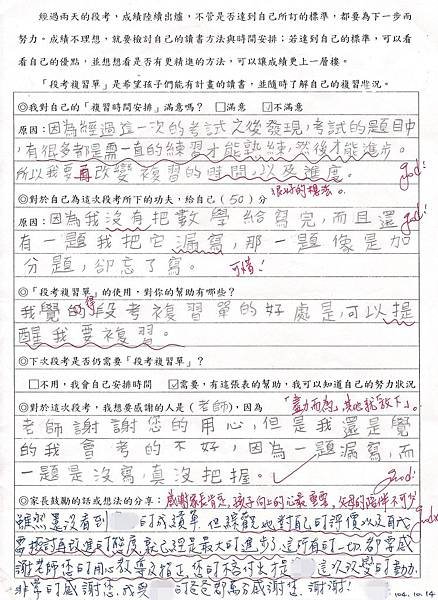 經過兩天的段考，成績陸續出爐，不管是否達到自己所訂的標準，都要為下一步而
努力。成績不理想，就要檢討自己的讀書方法與時間安排；若達到自己的標準，可以看
看自己的優點，並想想看是否有更精進的方法，可以讓成績更上一層樓。
「段考複習單」是希望孩子們能有計畫的讀書，並隨時了解自己的複習狀況。
◎我對自己的「複習時間安排」滿意嗎？□滿意 ☑不滿意
原因：因為經過這一次的考試之後發現，考試的題目中
，有很多都是需一直的練習才能熟練，然後才能進步。
所以我要再改變複習的時間，以及進度。
很好的想法。
good!
◎對於自己為這次段考所下的功夫，給自己（50）分
原因：因為我沒有把數學給寫完，而且還
有一題我把它漏寫，那一題像是加
分題，卻忘了寫。
可惜！
good!
◎「段考複習單」的使用，對你的幫助有哪些？
我覺得段考複習單的好處是可以提
醒我要複習。
◎下次段考是否仍需要「段考複習單」？
□不用，我會自己安排時間 ☑需要，有這張表的幫助，我可以知道自己的努力狀況
◎對於這次段考，我想要感謝的人是（老師），因為
「盡力而為」，其他就放下。
老師謝謝您的用心，但是我還是覺
的我會考的不好，因為一題漏寫，而
一題是沒寫，真沒把握。
good!
◎家長鼓勵的話或想法的分享：
感謝家長肯定，孩子向上的心最重要，父母的陪伴不可少
雖然還沒看到 的成績單，但樂觀地對自己的評價以及自我
需檢討再改進的態度，就已經是最大的進步了，這所有的一切都要感
謝老師您的用心教導及指正，
非常的感謝您， 爸爸都萬分感謝您，謝謝！
104.10.14